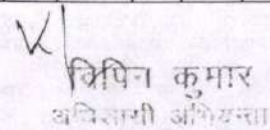 विपिन कुमार
अधिसाशी अभियन्ता